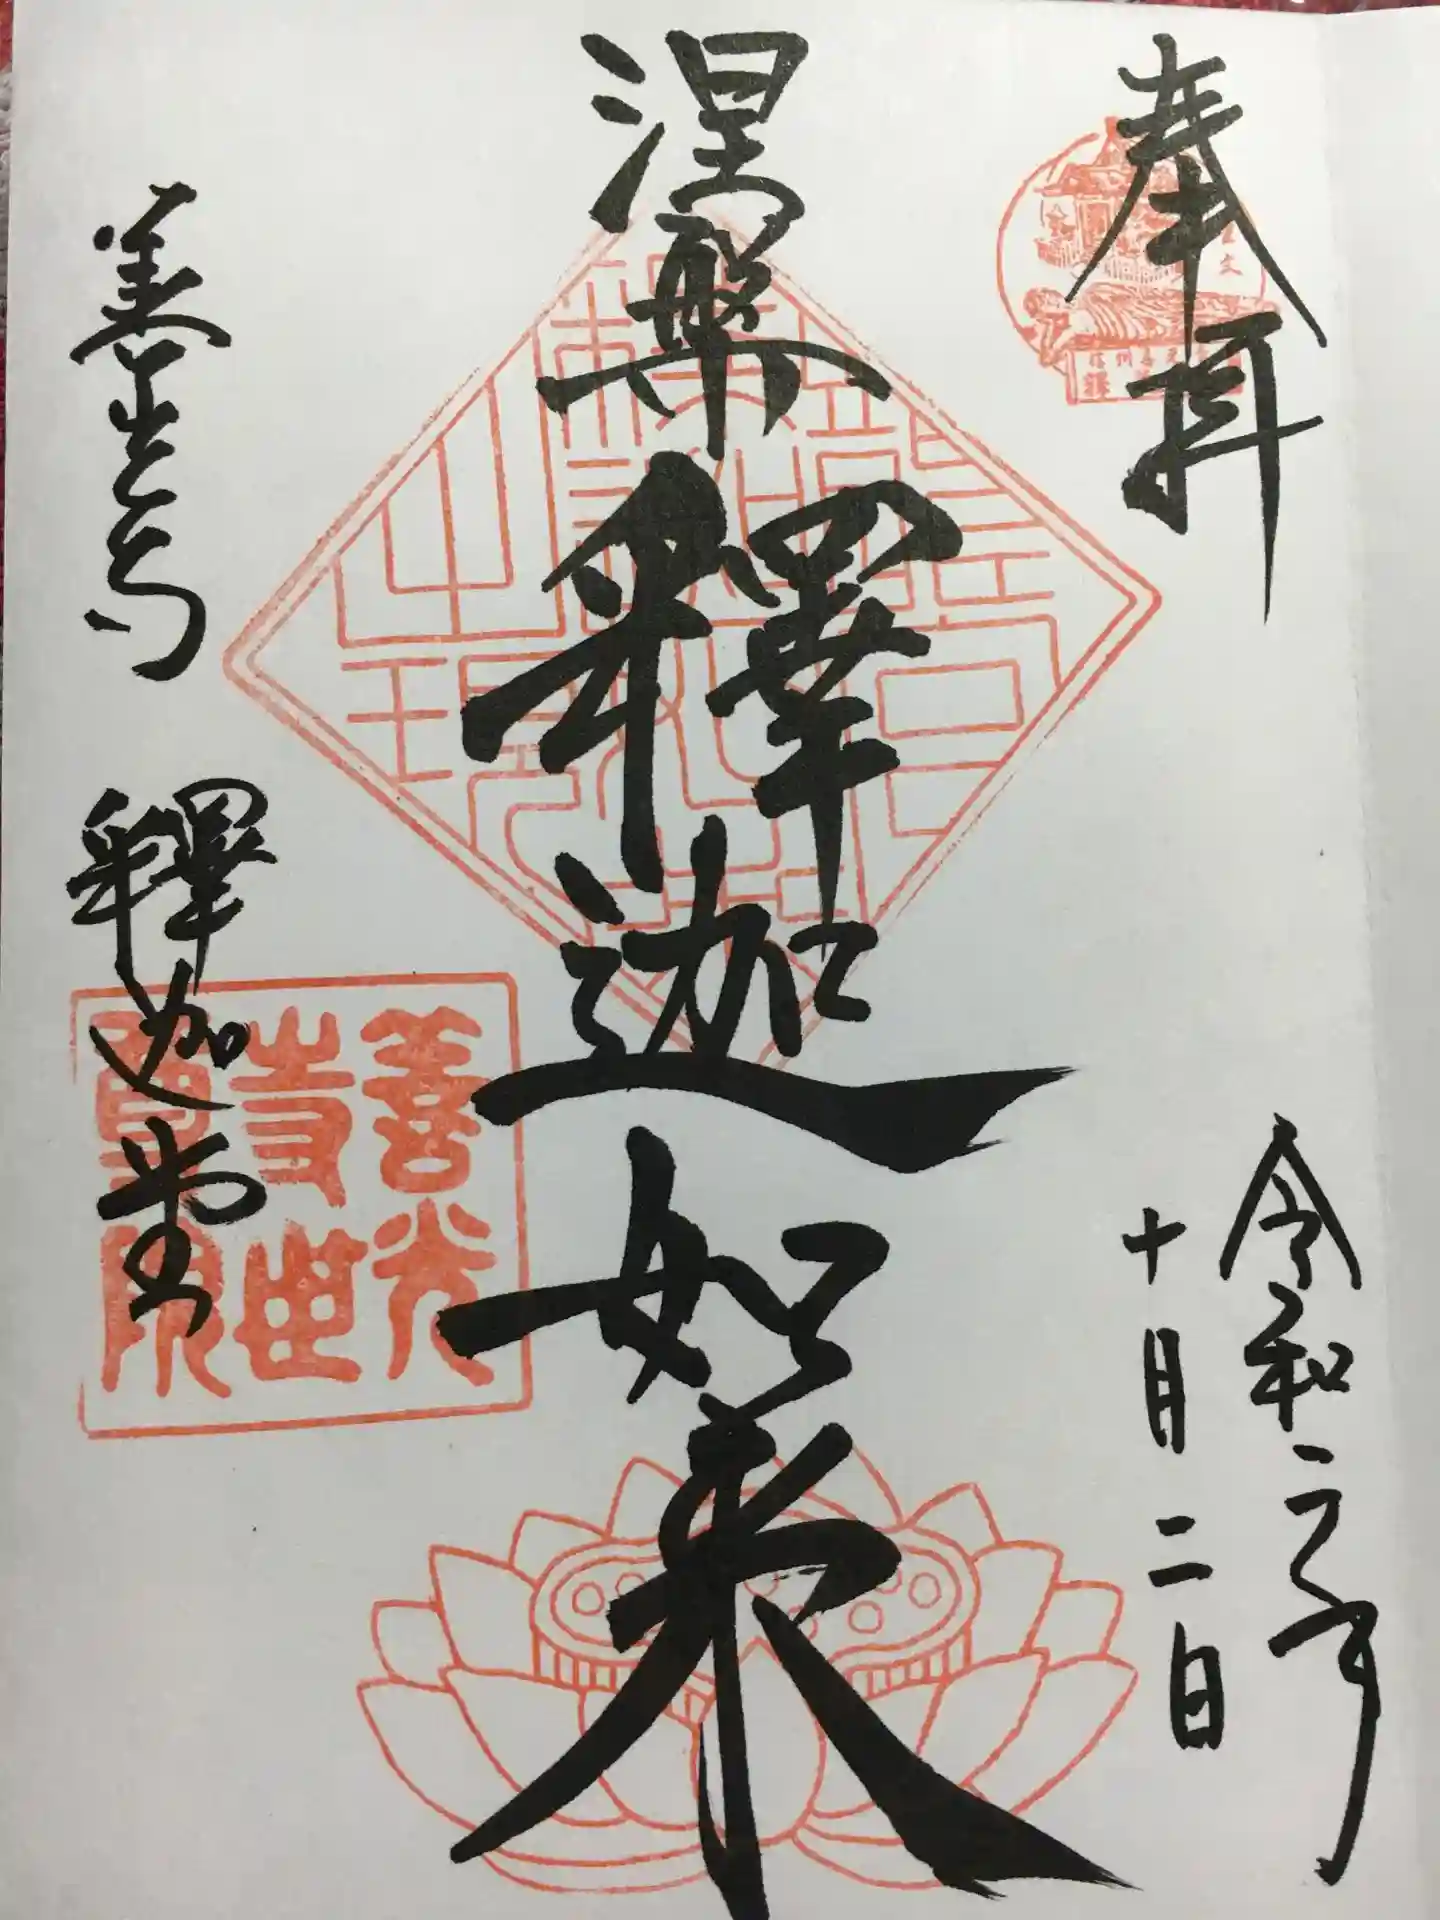 奉拝
令和元年
十月二日
涅槃釋迦如来
善光寺 釋迦堂
善光
寺世
尊院